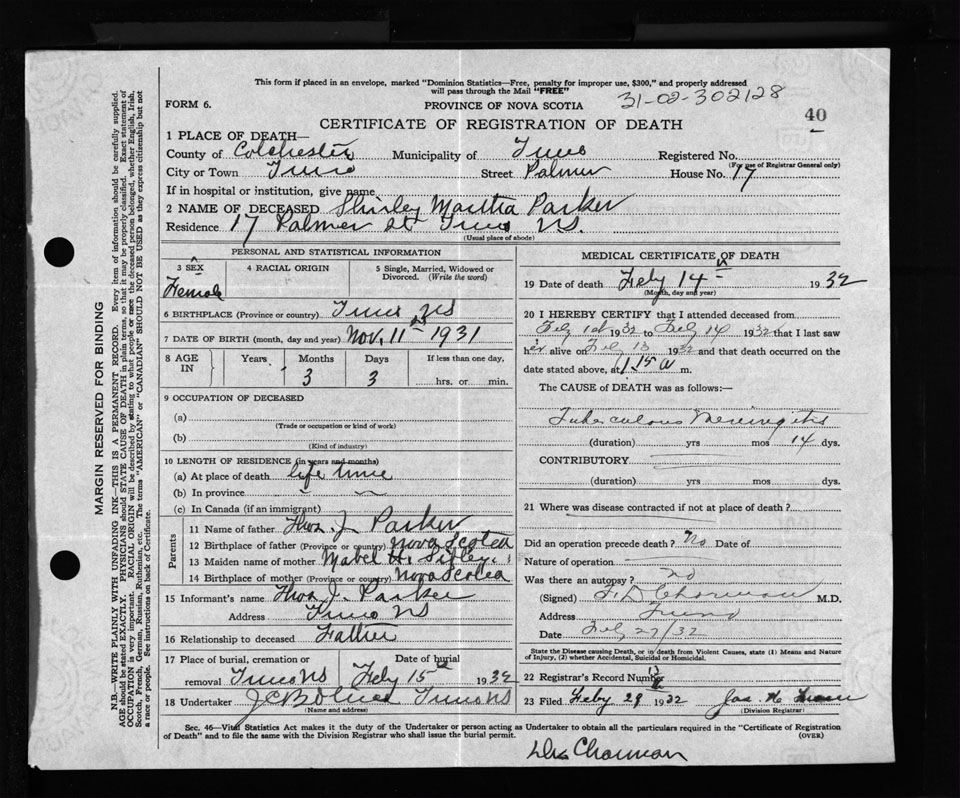 This form if placed in an envelope, marked "Dominion Statistics—Free, penalty for improper use, $300," and properly addressed
will pass through the Mail "FREE"
FORM 6.
PROVINCE OF NOVA SCOTIA
31-02-302128
40
CERTIFICATE OF REGISTRATION OF DEATH
1 PLACE OF DEATH—
County of Colchester Municipality of Truro Registered No.
(For use of Registrar General only)
City or Town Truro Street Palmer House No. 17
If in hospital or institution, give name
2 NAME OF DECEASED Shirley Martha Parker
Residence 17 Palmer St Truro NS.
(Usual place of abode)
PERSONAL AND STATISTICAL INFORMATION
3 SEX
Female
4 RACIAL ORIGIN
5 Single, Married, Widowed or Divorced. (Write the word)
6 BIRTHPLACE (Province or country) Truro NS
7 DATE OF BIRTH (month, day and year) Nov. 11th 1931
8 AGE IN Years Months 3 Days 3 If less than one day, hrs. or min.
9 OCCUPATION OF DECEASED
(a)
(Trade or occupation or kind of work)
(b)
(Kind of industry)
10 LENGTH OF RESIDENCE (in years and months)
(a) At place of death life time
(b) In province
(c) In Canada (if an immigrant)
Parents
11 Name of father Thos. J. Parker
12 Birthplace of father (Province or country) Nova Scotia
13 Maiden name of mother Mabel H.
14 Birthplace of mother (Province or country) Nova Scotia
15 Informant's name Thos J. Parker
Address Truro NS
16 Relationship to deceased Father
17 Place of burial, cremation or removal Truro NS
Date of burial Feby 15th 1932
18 Undertaker Truro NS
(Name and address)
MEDICAL CERTIFICATE OF DEATH
19 Date of death Feby 14th 1932
(Month, day and year)
20 I HEREBY CERTIFY that I attended deceased from
Feby 1st 1932 to Feby 14 1932 that I last saw
her alive on Feby 13 1932 and that death occurred on the
date stated above, at 1.15 a m.
The CAUSE of DEATH was as follows:—
Tuberculous Meningitis
(duration) yrs mos 14 dys.
CONTRIBUTORY
(duration) yrs mos dys.
21 Where was disease contracted if not at place of death?
Did an operation precede death? No Date of
Nature of operation
Was there an autopsy? no
(Signed) F.D. Charman M.D.
Address Truro
Date Feby 27/32
State the Disease causing Death, or in death from Violent Causes, state (1) Means and Nature of Injury, (2) whether Accidental, Suicidal or Homicidal.
22 Registrar's Record Number
23 Filed Feby 29 1932 Jas H
(Division Registrar)
Sec. 46—Vital Statistics Act makes it the duty of the Undertaker or person acting as Undertaker to obtain all the particulars required in the "Certificate of Registration
of Death" and to file the same with the Division Registrar who shall issue the burial permit.
(OVER)
Charman
MARGIN RESERVED FOR BINDING
N.B.—WRITE PLAINLY WITH UNFADING INK—THIS IS A PERMANENT RECORD. Every item of information should be carefully supplied.
AGE should be stated EXACTLY. PHYSICIANS should STATE CAUSE OF DEATH in plain terms, so that it may be properly classified. Exact statement of
OCCUPATION is very important. RACIAL ORIGIN will be described by stating to what people or race the deceased person belonged, whether English, Irish,
Scotch, French, German, Russian, Ruthenian, etc. The terms "AMERICAN" or "CANADIAN" SHOULD NOT BE USED as they express citizenship but not
a race or people. See instructions on back of Certificate.